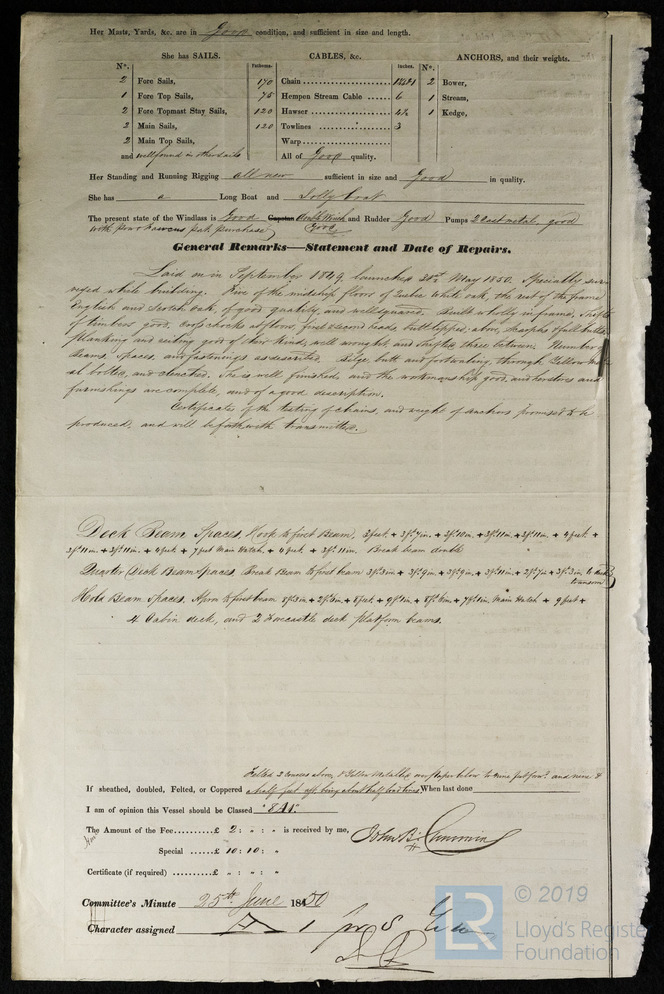 Her Masts, Yards, &c. are in Good condition, and sufficient in size and length.
She has SAILS. CABLES, &c. ANCHORS, and their weights.
N°. Fathoms. Inches. N°.
2 Fore Sails, 170 Chain 2 Bower,
1 Fore Top Sails, 75 Hempen Stream Cable 6 1 Stream,
2 Fore Topmast Stay Sails, 120 Hawser 4½ 1 Kedge,
2 Main Sails, 120 Towlines 3
2 Main Top Sails, Warp
and well found in other sails All of Good quality.
Her Standing and Running Rigging all new sufficient in size and Good in quality.
She has a Long Boat and Jolly boat
The present state of the Windlass is Good Capstan and Rudder Good Pumps 2 cast metal good
with purchase Good
General Remarks—Statement and Date of Repairs.
Laid on in September 1849, launched May 1850. Specially sur-
veyed while building. Five of the midship floors of Quebec white oak, the rest of the frame
English and Scotch Oak, of good quality, and well squared. Built wholly in frame, shifts
of timbers good, chocks at floors, first & second heads, butt lopped above,
planking and ceiling good of their kinds, well wrought, and shifted three between. Number of
Beams, Spaces, and fastenings as described. Bilge, butt and footwaling, through Yellow Met-
al bolted, and clenched. She is well finished, and the workmanship good, and her stores and
furnishings are complete, and of a good description.
Certificates of the testing of chains, and weight of Anchors promised to be
produced, and will be forthwith transmitted.
Deck Beam Spaces, Hook to first Beam, 3 feet + 3ft 7in. + 3ft 10in. + 3ft 11in. + 3ft 11in. + 4 feet +
3ft 11in. + 3ft 11in. + 4 feet + 7 feet Main Hatch, + 4 feet + 3ft 11in. Break beam double
Quarter Deck Beam Spaces, Break Beam to first beam 3ft 3in + 3ft 9in + 3ft 9in. + 3ft 11in + 2ft 7in + 3ft 3in to deck
transom
Hold Beam Spaces, Apron to first beam Main Hatch + 9 feet +
4 Cabin deck, and 2 Forecastle deck platform beams.
Felted 3 courses above, & Yellow Metalled over paper below to nine feet forwd. and nine &
If sheathed, doubled, Felted, or Coppered a half feet aft, being about half load lines When last done
I am of opinion this Vessel should be Classed "8A1."
The Amount of the Fee £ 2: „ : „ is received by me,
John B. Cumming
Special £ 10: 10: „
Certificate (if required) £ „ : „ : „
Committee's Minute 25th June 1850
Character assigned A 1 for 8
LR
© 2019
Lloyd's Registe
Foundation